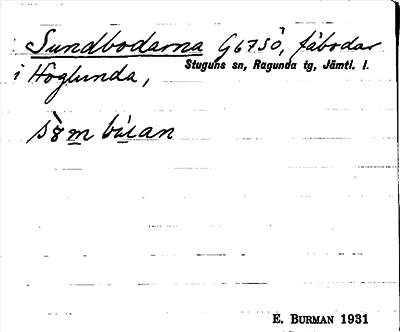 Sundbodarna G6750, fäbodar
i Höglunda, Stuguns sn, Ragunda tg, Jämtl. l.
E. BURMAN 1931